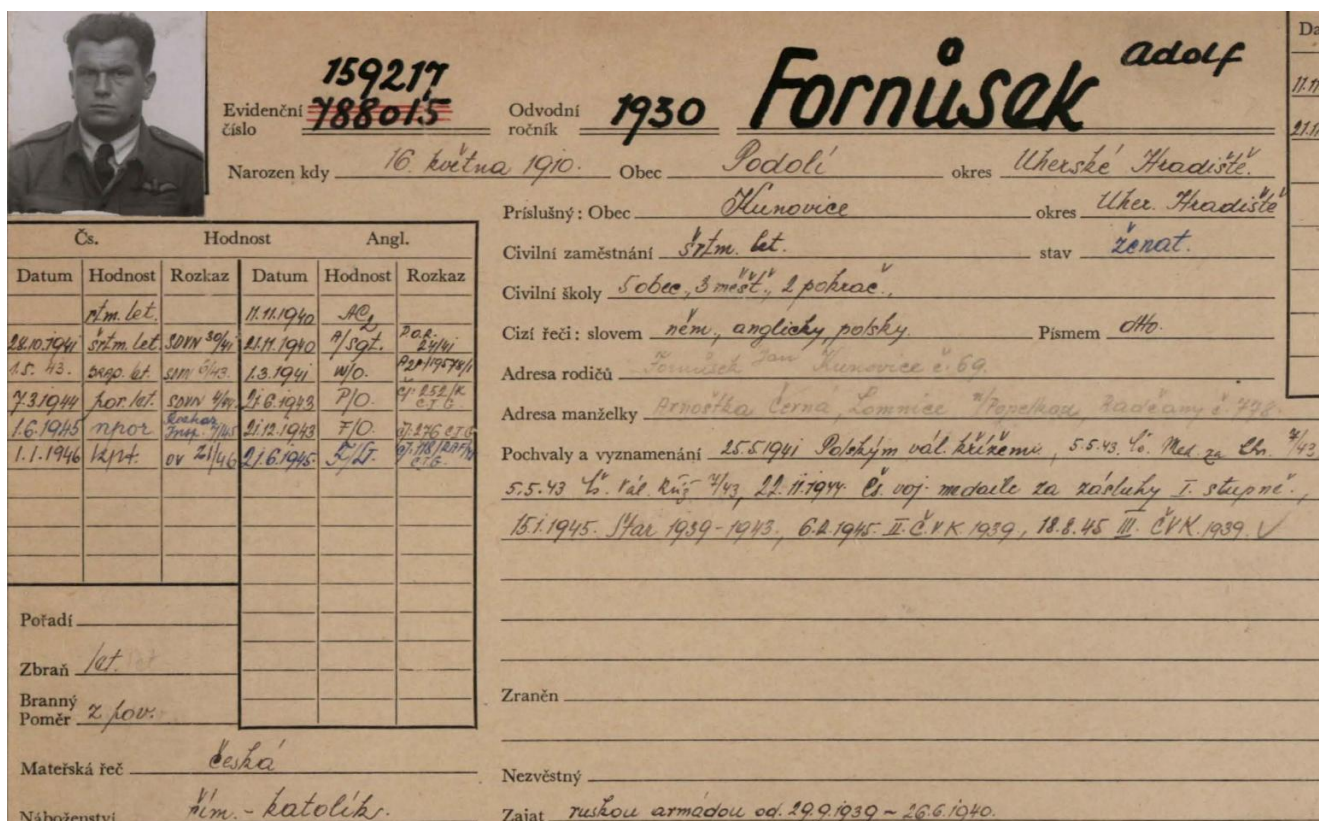 159217
Evidenční číslo 788015 Odvodní ročník 1930 Fornůsek Adolf
Narozen kdy 16. května 1910. Obec Podolí okres Uherské Hradiště.
Príslušný: Obec Kunovice okres Uher. Hradiště
Civilní zaměstnání šrtm. let. stav ženat.
Civilní školy 5 obec, 3 měšť., 2 pokrač.,
Cizí řeči: slovem něm., anglicky, polsky. Písmem dtto.
Adresa rodičů Fornůsek Jan Kunovice č. 69.
Adresa manželky Arnoštka Černá, Lomnice n/Popelkou, č. 778.
Pochvaly a vyznamenání 25.5.1941 Polským vál. křížem, 5.5.43. Čs. Med. za Chr. 7/43
5.5.43 Čs. Vál. Kříž 7/43, 22.11.1944 Čs. voj. medaile za zásluhy I. stupně.,
15.1.1945. Star 1939-1943., 6.2.1945. II. Č.V.K. 1939., 18.8.45 III. ČVK. 1939.
Zraněn
Nezvěstný
Zajat ruskou armádou od. 29.9.1939 ~ 26.6.1940.
Čs. Hodnost Angl.
Datum Hodnost Rozkaz Datum Hodnost Rozkaz
rtm. let. 11.11.1940 AC2
28.10.1941 šrtm. let. SDVN 30/41 21.11.1940 A/Sgt. D.O.R. 24/41
1.5. 43. let. 1.3.1941 W/O.
7.3.1944 por. let. SDVN 21.6.1943 P/O. čj. 252/K C.I.G.
1.6.1945 npor Rozkaz 21.12.1943 F/O. čj. 276 C.I.G.
1.1.1946 kpt. OV 21/46 21.6.1945. F/Lt. C.I.G.
Pořadí
Zbraň let.
Branný Poměr z pov.
Mateřská řeč česká
Náboženství řím. - katolík.
Da
11.11
21.11